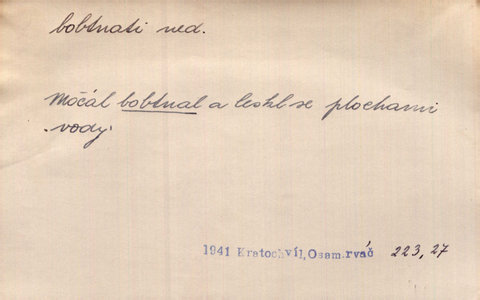 bobtnati ned.
Močál bobtnal a leskl se plochami
vody.
1941 Kratochvíl, Osam.rváč 223, 27